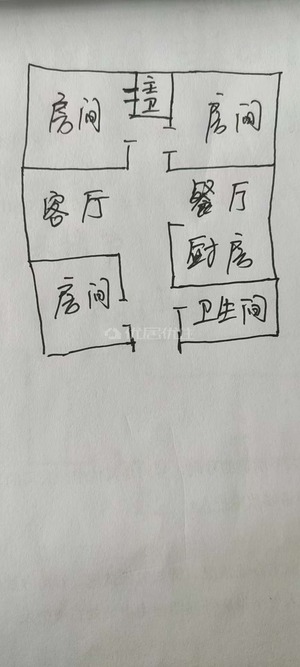 房间
主卫
房间
客厅
餐厅
厨房
房间
卫生间